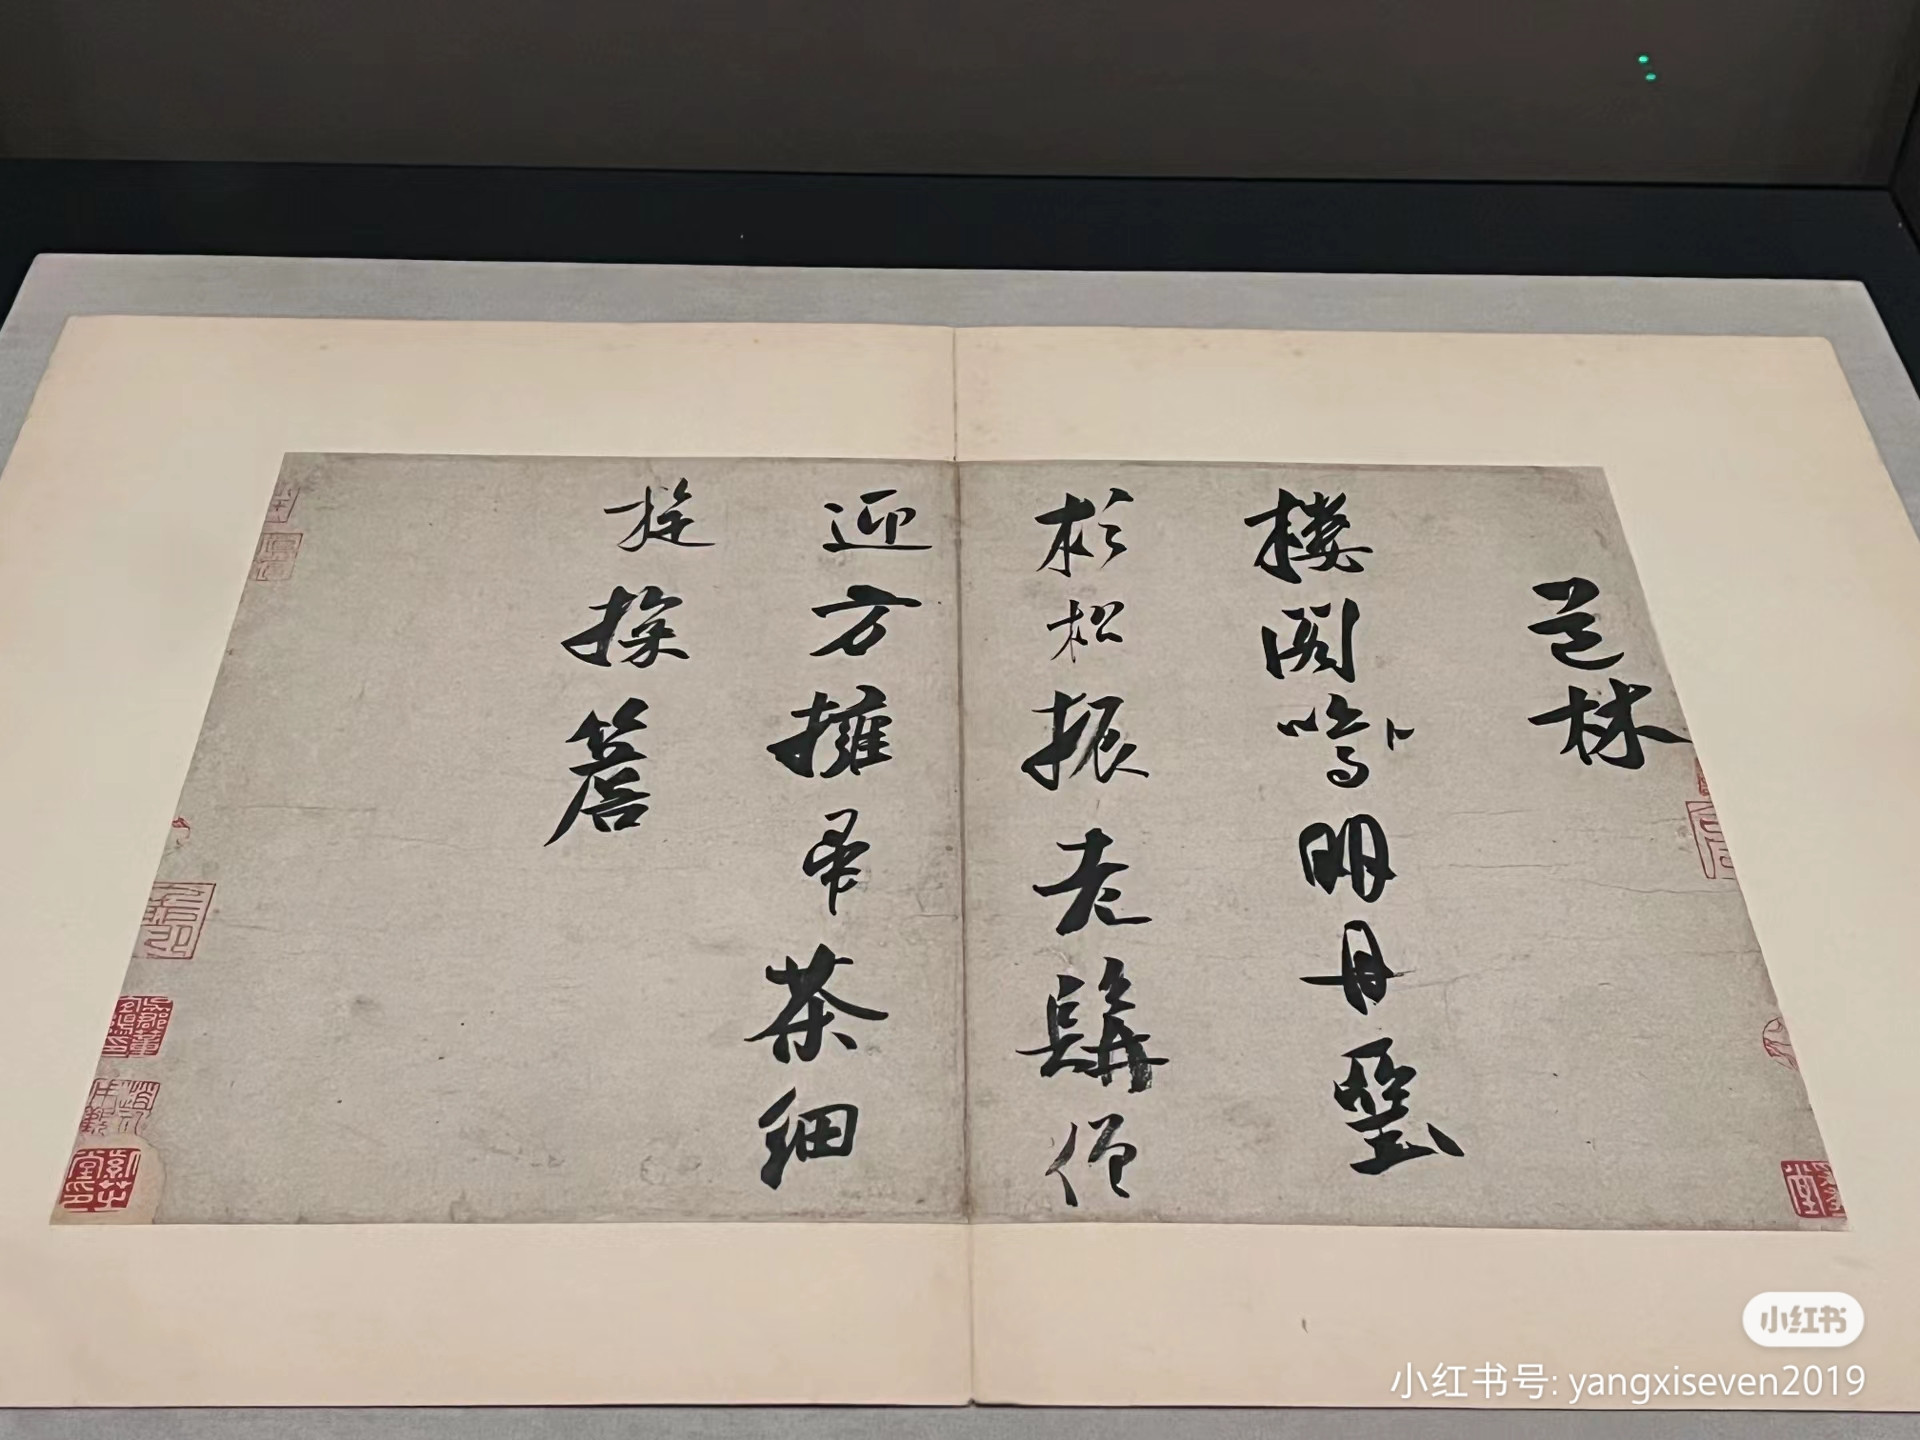 道林
樓閣鳴明丹堊
杉松振老髯僧
迎方擁帚茶細
旋探簷
小红书
小红书号: yangxiseven2019